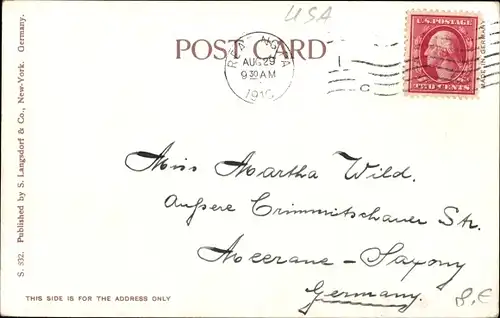 USA
POST CARD
AUG 29
9 30 AM
1910
U.S. POSTAGE
TWO CENTS
MADE IN GERMANY
S. 332. Published by S. Langsdorf & Co., New-York. Germany.
Miss Martha Wild.
Äußere Crimmitschauer Str.
Meerane – Saxony
Germany.
THIS SIDE IS FOR THE ADDRESS ONLY